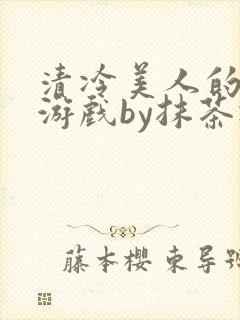 清冷美人的
游戏by抹茶
藤本櫻 東导